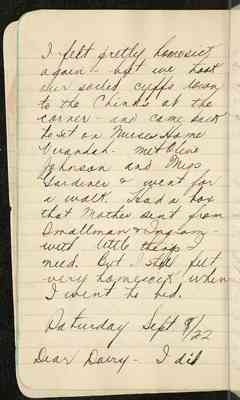 I felt pretty homesick
again - but we took
our soiled cuffs down
to the Chinks at the
corner - and came back
to set on Nurses Home
Verandah - met Olive
Johnson and Miss
Gardiner & went for
a walk. Had a box
that Mother sent from
Smallman & Ingram -
with little things I
need. But I still felt
very homesick when
I went to bed.
Saturday Sept 9/22
Dear Dairy - I did